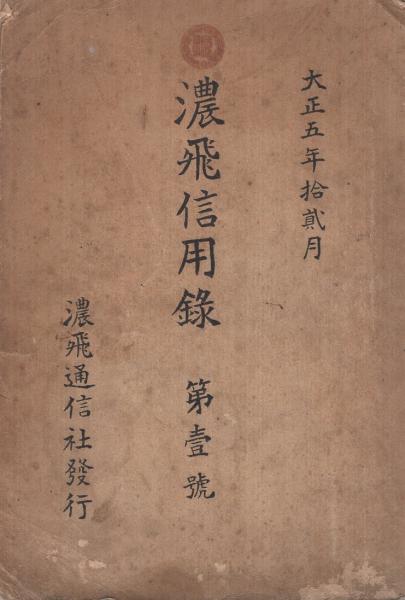 大正五年拾貳月
濃飛信用錄 第壹號
濃飛通信社發行